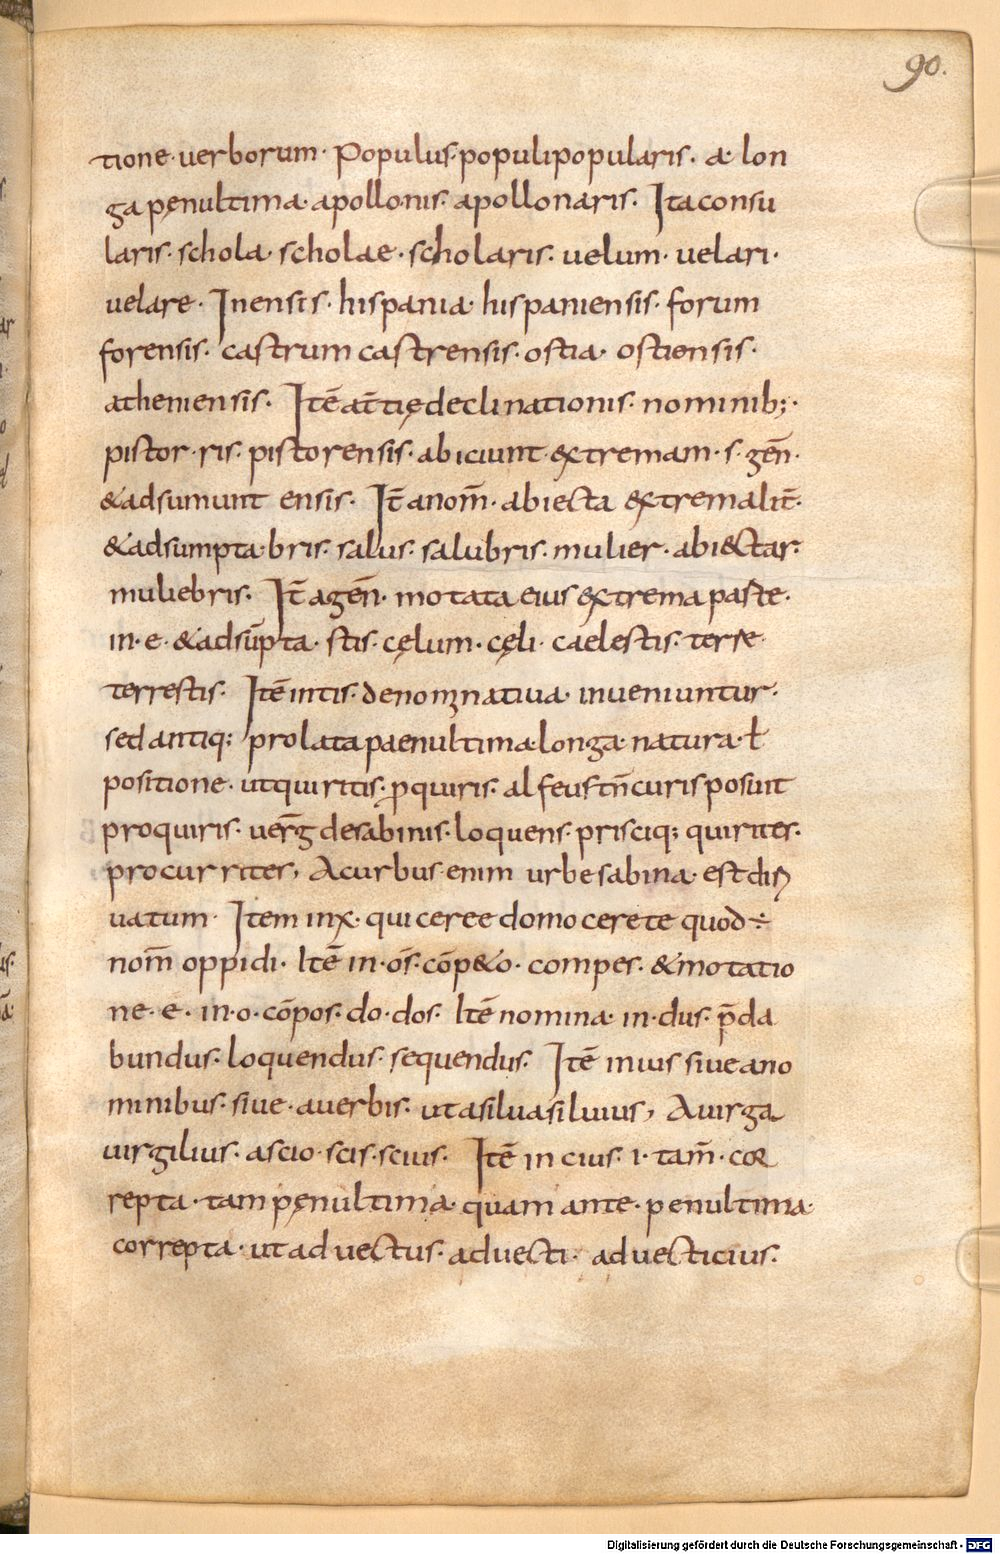 90.
tione· uerborum· Populus· populi popularis· a lon
ga pęnultima· apollonis· apollonaris· Ita consu
laris· schola· scholae· scholaris· uelum· uelari·
uelare· In ensis· hispania· hispaniensis· forum
forensis· castrum castrensis· ostia· ostiensis·
atheniensis· Itē a t̄tię declinationis· nominib;·
pistor·ris· pistorensis· abiciunt· extremam·s· geñ·
& adsumunt ensis· It̄ anom̄· abiecta extrema lit̄·
& adsumpta·bris· salus· salubris· mulier· abiecta r·
muliebris· It̄ a geñ· motata eius extrema parte·
in·e· & adsūpta· stis· cęlum· cęli· caelestis· terre
terrestis· Itē in tis· denominatiua· inueniuntur·
sed antiq; prolata paenultima longa natura· ł
positione· ut quiritis· ꝓ quiris· alfeus tñ curis posuit
pro quiris· uerg̃ de sabinis· loquens· prisciq; quirites·
pro currites, A curbus enim urbe sabina· est diri
uatum· Item in x· qui ceree domo cerete quod ÷
nom̄ oppidi· Itē in·os̄· cōp&o· compes· & motatio
ne·e· in·o· cōpos· do·dos· Itē nomina· in·dus· p̄da
bundus· loquendus· sequendus· Itē in ius siue a no
minibus· siue· a uerbis· ut a silua siluius, A uirga
uirgilius· a scio·scis·scius· Itē in cius·i· tam̄·cor
repta· tam pęnultima· quam ante·penultima·
correpta· ut aduectus· aduecti· aduecticius·
Digitalisierung gefördert durch die Deutsche Forschungsgemeinschaft - DFG